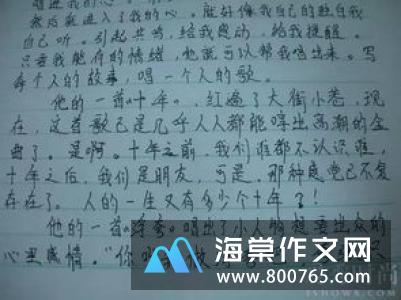 唱进我的心。
然后就进入了我的心。就好像我自己的独白我
自己听。引起共鸣，给我感动，给我提醒。
只要我能有的情绪，他就可以帮我唱出来。写
每个人的故事，唱一个人的歌。
他的一首《十年》，红遍了大街小巷，现
在，这首歌已是几乎人人都能哼出高潮的金
曲了。是啊。十年之前，我们谁都不认识谁，
十年之后，我们是朋友，可是，那种感觉已不复
存在了。人的一生又有多少个十年了！
他的一首 唱出了小人物想要出众的
心里感情。"你
海棠作文网
www.800765.com